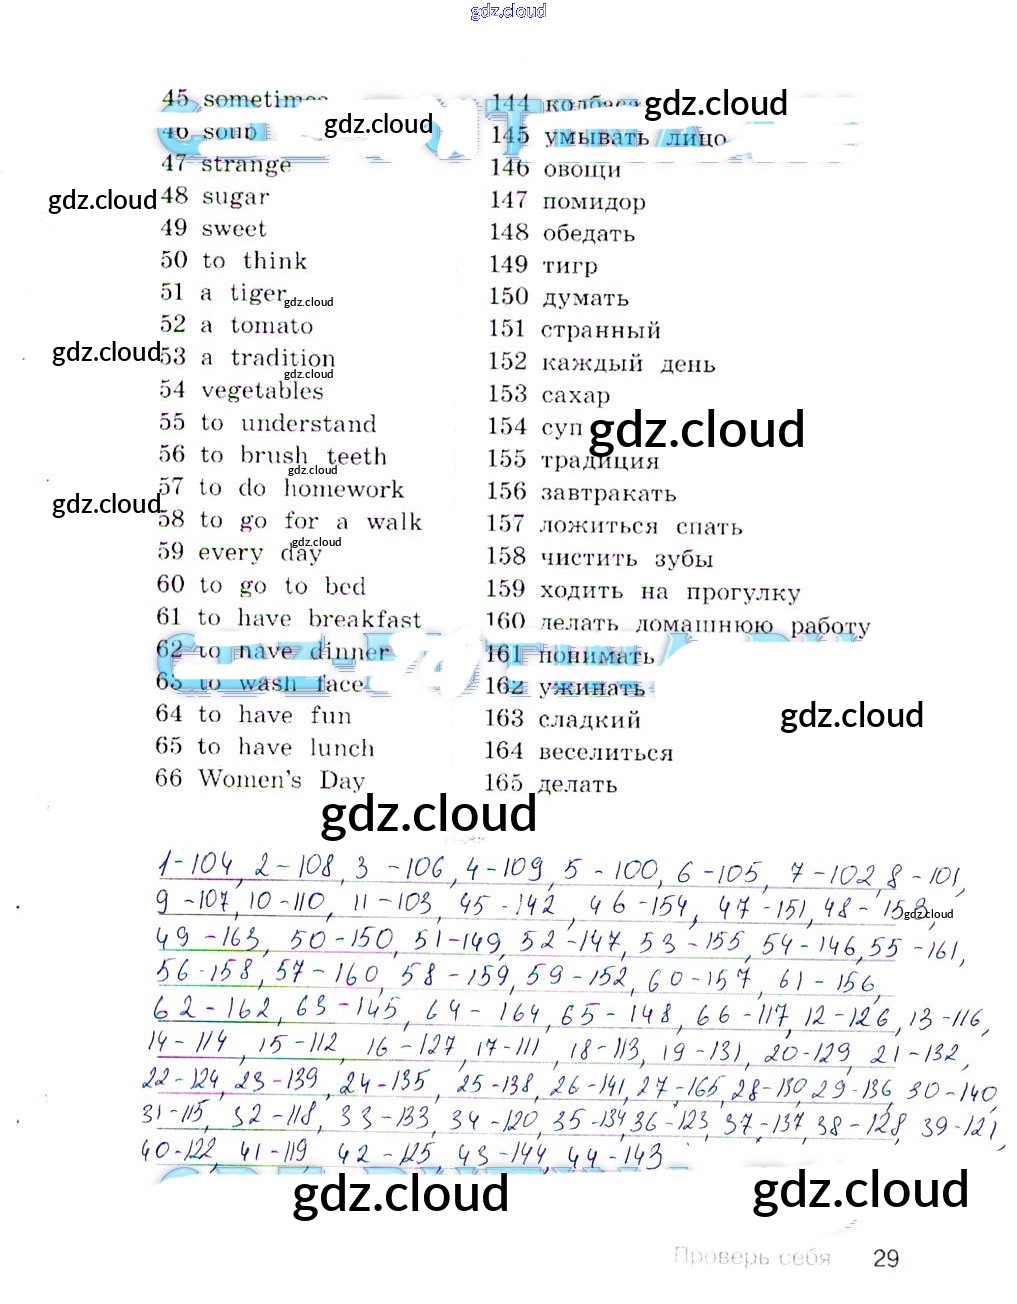 gdz.cloud
45 sometimes 144 колбаса gdz.cloud
46 soup gdz.cloud 145 умывать лицо
47 strange 146 овощи
gdz.cloud 48 sugar 147 помидор
49 sweet 148 обедать
50 to think 149 тигр
51 a tiger gdz.cloud 150 думать
52 a tomato 151 странный
gdz.cloud 53 a tradition 152 каждый день
gdz.cloud
54 vegetables 153 сахар
55 to understand 154 суп gdz.cloud
56 to brush teeth 155 традиция
gdz.cloud
57 to do homework 156 завтракать
gdz.cloud
58 to go for a walk 157 ложиться спать
gdz.cloud
59 every day 158 чистить зубы
60 to go to bed 159 ходить на прогулку
61 to have breakfast 160 делать домашнюю работу
62 to have dinner 161 понимать
63 to wash face 162 ужинать
64 to have fun 163 сладкий gdz.cloud
65 to have lunch 164 веселиться
66 Women's Day 165 делать
gdz.cloud
1-104, 2-108, 3-106, 4-109, 5-100, 6-105, 7-102, 8-101,
9-107, 10-110, 11-103, 45-142, 46-154, 47-151, 48-153, gdz.cloud
49-163, 50-150, 51-149, 52-147, 53-155, 54-146, 55-161,
56-158, 57-160, 58-159, 59-152, 60-157, 61-156,
62-162, 63-145, 64-164, 65-148, 66-117, 12-126, 13-116,
14-114, 15-112, 16-127, 17-111, 18-113, 19-131, 20-129, 21-132,
22-124, 23-139, 24-135, 25-138, 26-141, 27-165, 28-130, 29-136, 30-140,
31-115, 32-118, 33-133, 34-120, 35-134, 36-123, 37-137, 38-128, 39-121,
40-122, 41-119, 42-125, 43-144, 44-143
gdz.cloud gdz.cloud
Проверь себя 29